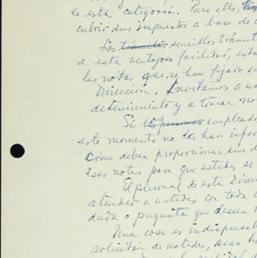 es esta categoría. Para ellos,
cubrir sus impuestos a base de
Los sencillos trámit
a esta ventajosa facilidad, está
les notas que se han fijado
Dirección. Invitamos a us
detenimiento y a tomar no
Si empleado
este momento no le han infor
cómo deben proporcionar sus d
esas notas para que ustedes se
El personal de esta Direc
atender a ustedes con toda
duda o pregunta que desean
Una cosa es indispensab
solicitar de ustedes, sean